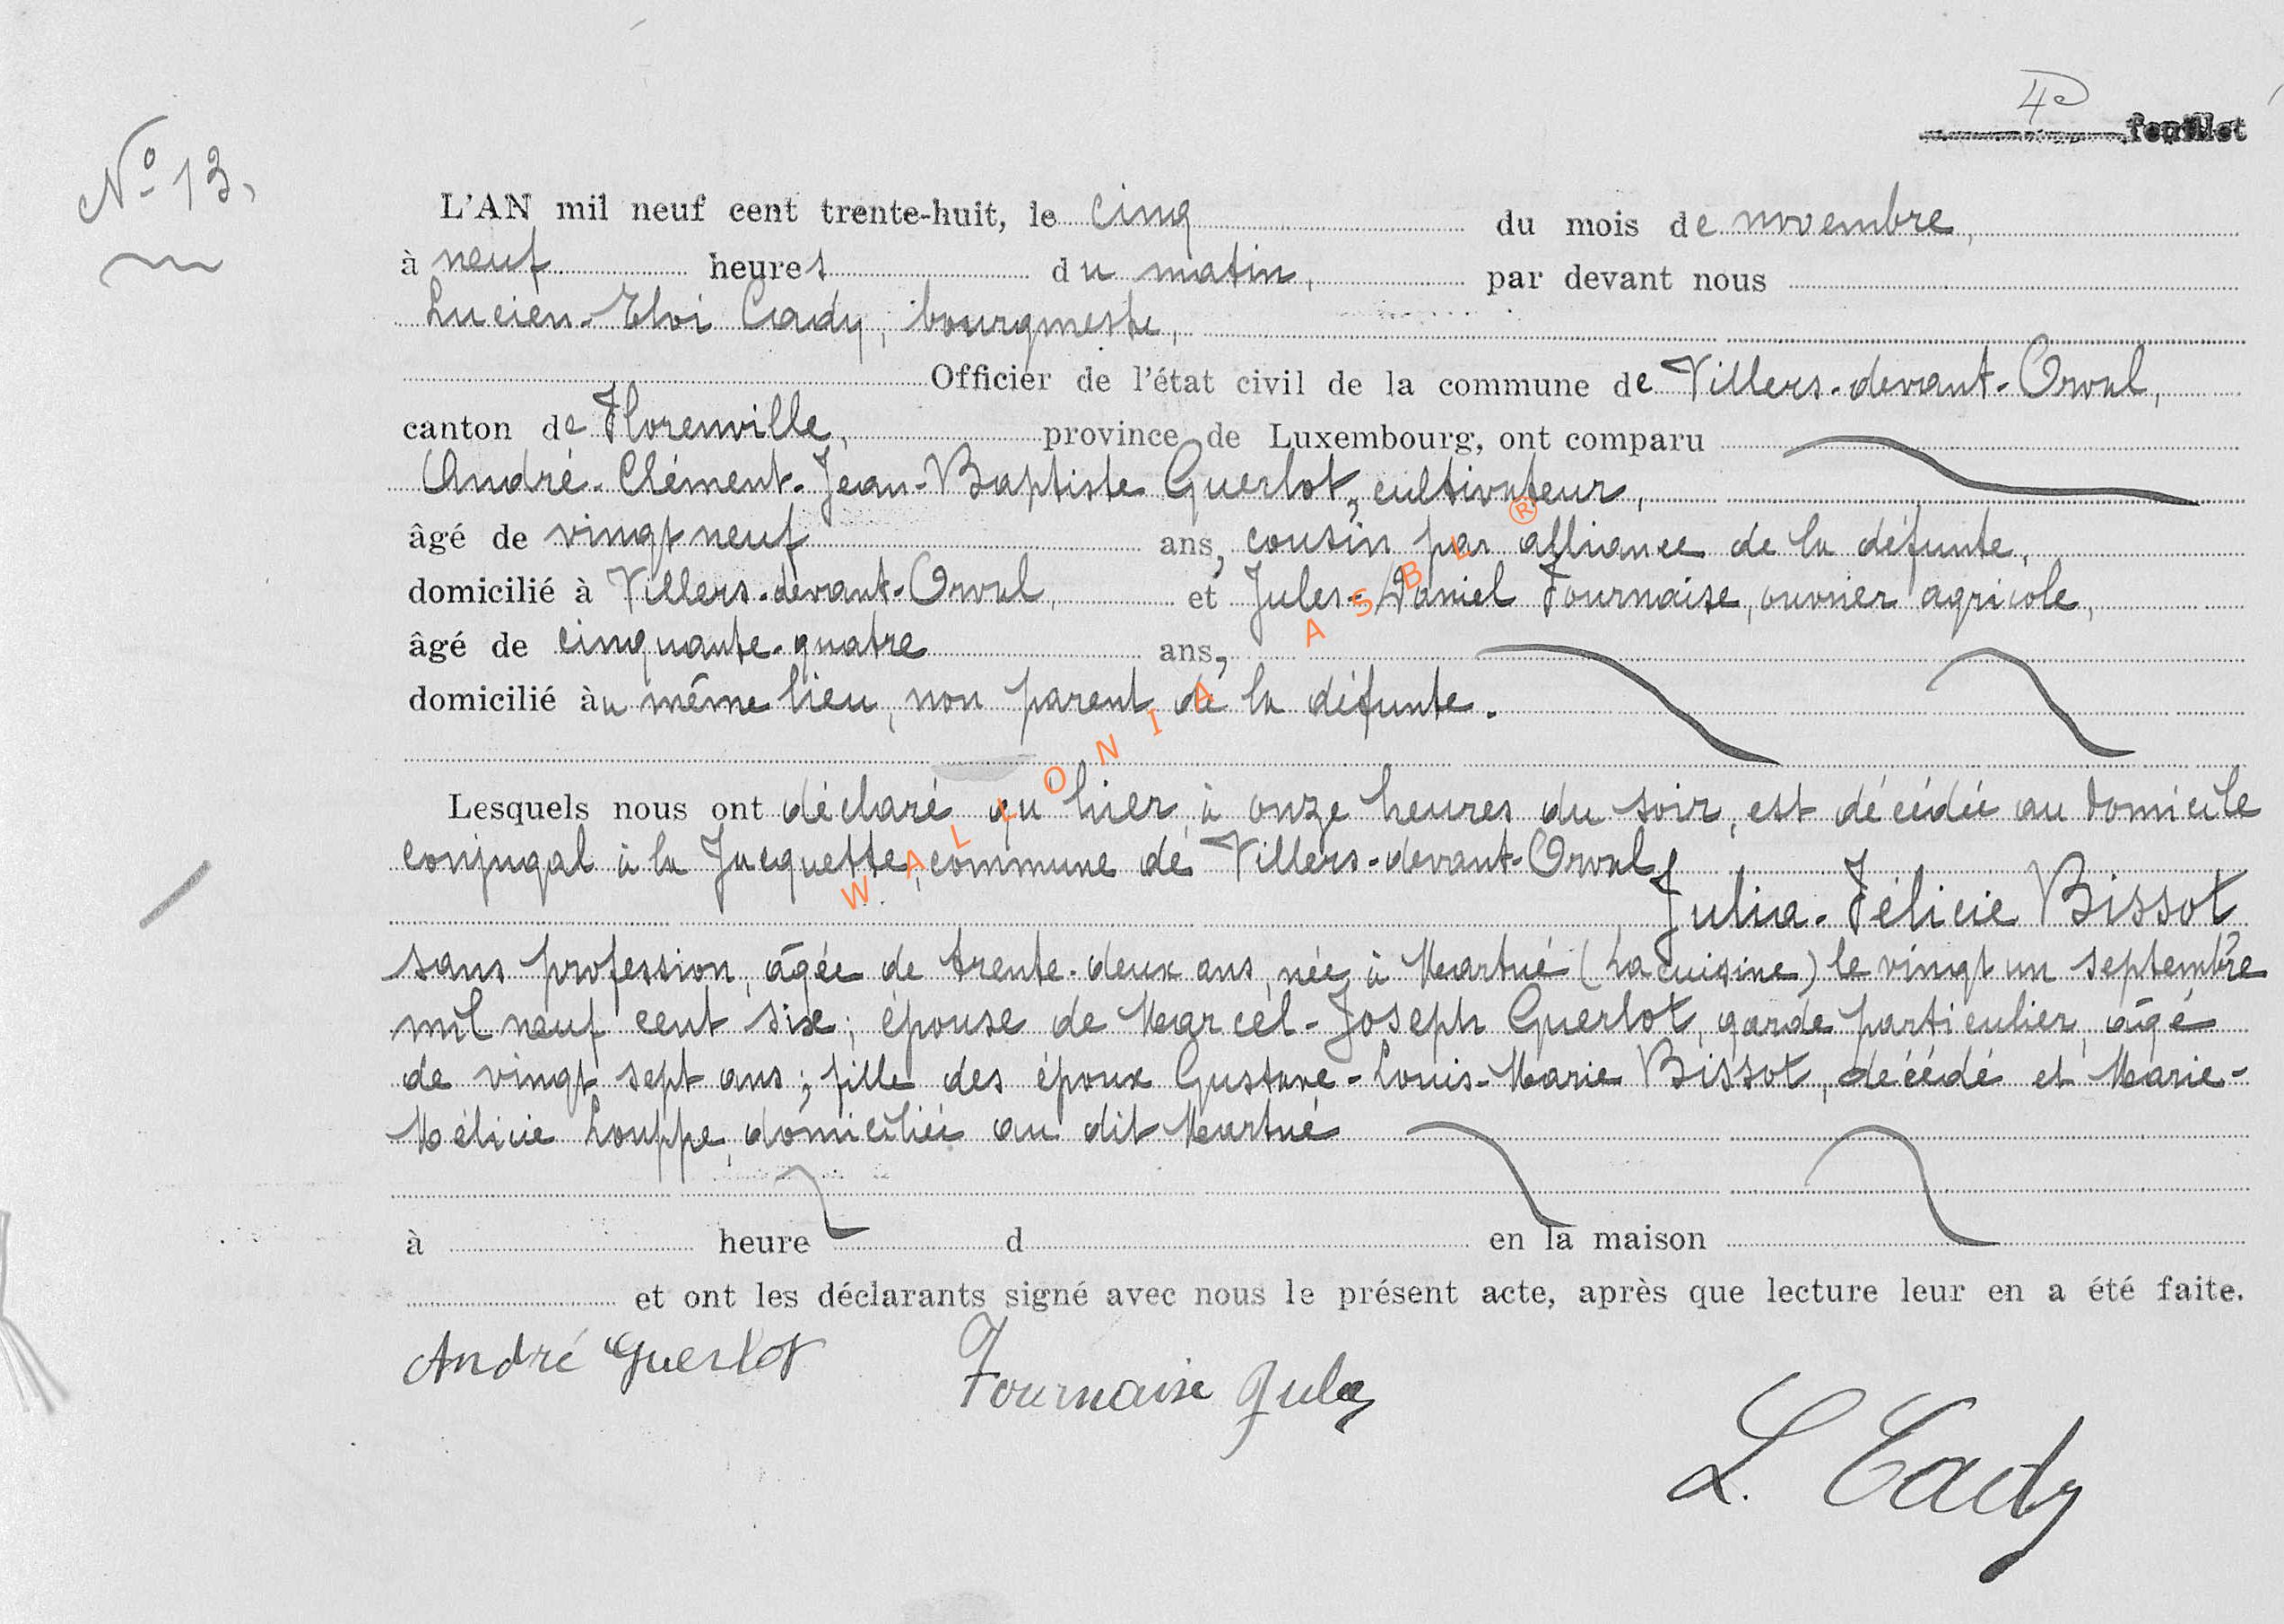 4e feuillet
N° 13,
L'AN mil neuf cent trente-huit, le cinq du mois de novembre,
à neuf heures du matin, par devant nous
Lucien-Eloi Cady, bourgmestre,
Officier de l'état civil de la commune de Villers-devant-Orval,
canton de Florenville, province de Luxembourg, ont comparu
André-Clément-Jean-Baptiste Guerlot, cultivateur,
âgé de vingt neuf ans, cousin par alliance de la défunte,
domicilié à Villers-devant-Orval, et Jules-Daniel Fournaise, ouvrier agricole,
âgé de cinquante-quatre ans,
domicilié au même lieu, non parent de la défunte.
Lesquels nous ont déclaré qu'hier, à onze heures du soir, est décédée au domicile
conjugal à la Jacquette, commune de Villers-devant-Orval,
Julia-Félicie Bissot
sans profession, âgée de trente-deux ans, née à Martué (Lacuisine) le vingt un septembre
mil neuf cent six; épouse de Marcel-Joseph Guerlot, garde particulier, âgé
de vingt sept ans; fille des époux Gustave-Louis-Marie Bissot, décédé et Marie-
Mélicie Louppe, domiciliée au dit Martué
à heure d en la maison
et ont les déclarants signé avec nous le présent acte, après que lecture leur en a été faite.
André Guerlot Fournaise Jules
L. Cady
WALLONIA ASBL ®